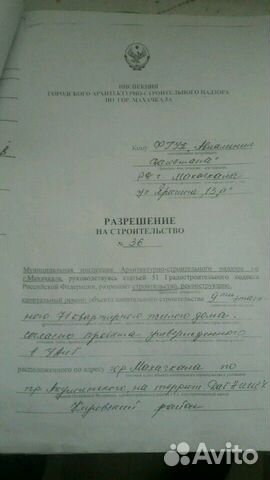 ИНСПЕКЦИЯ
ГОРОДСКОГО АРХИТЕКТУРНО-СТРОИТЕЛЬНОГО НАДЗОРА
ПО ГОР. МАХАЧКАЛА
Кому ФГУП
РД г. Махачкала
ул
РАЗРЕШЕНИЕ
НА СТРОИТЕЛЬСТВО
№ 36
Муниципальная инспекция Архитектурно-строительного надзора
г.Махачкала, руководствуясь статьей 51 Градостроительного кодекса
Российской Федерации, разрешает строительство, реконструкцию,
капитальный ремонт объекта капитального строительства
ного 71 квартирного жилого дома.
согласно проекта утвержденного
в
расположенного по адресу гор Махачкала по
пр Акушинского, на террит.
Кировский район
Avito